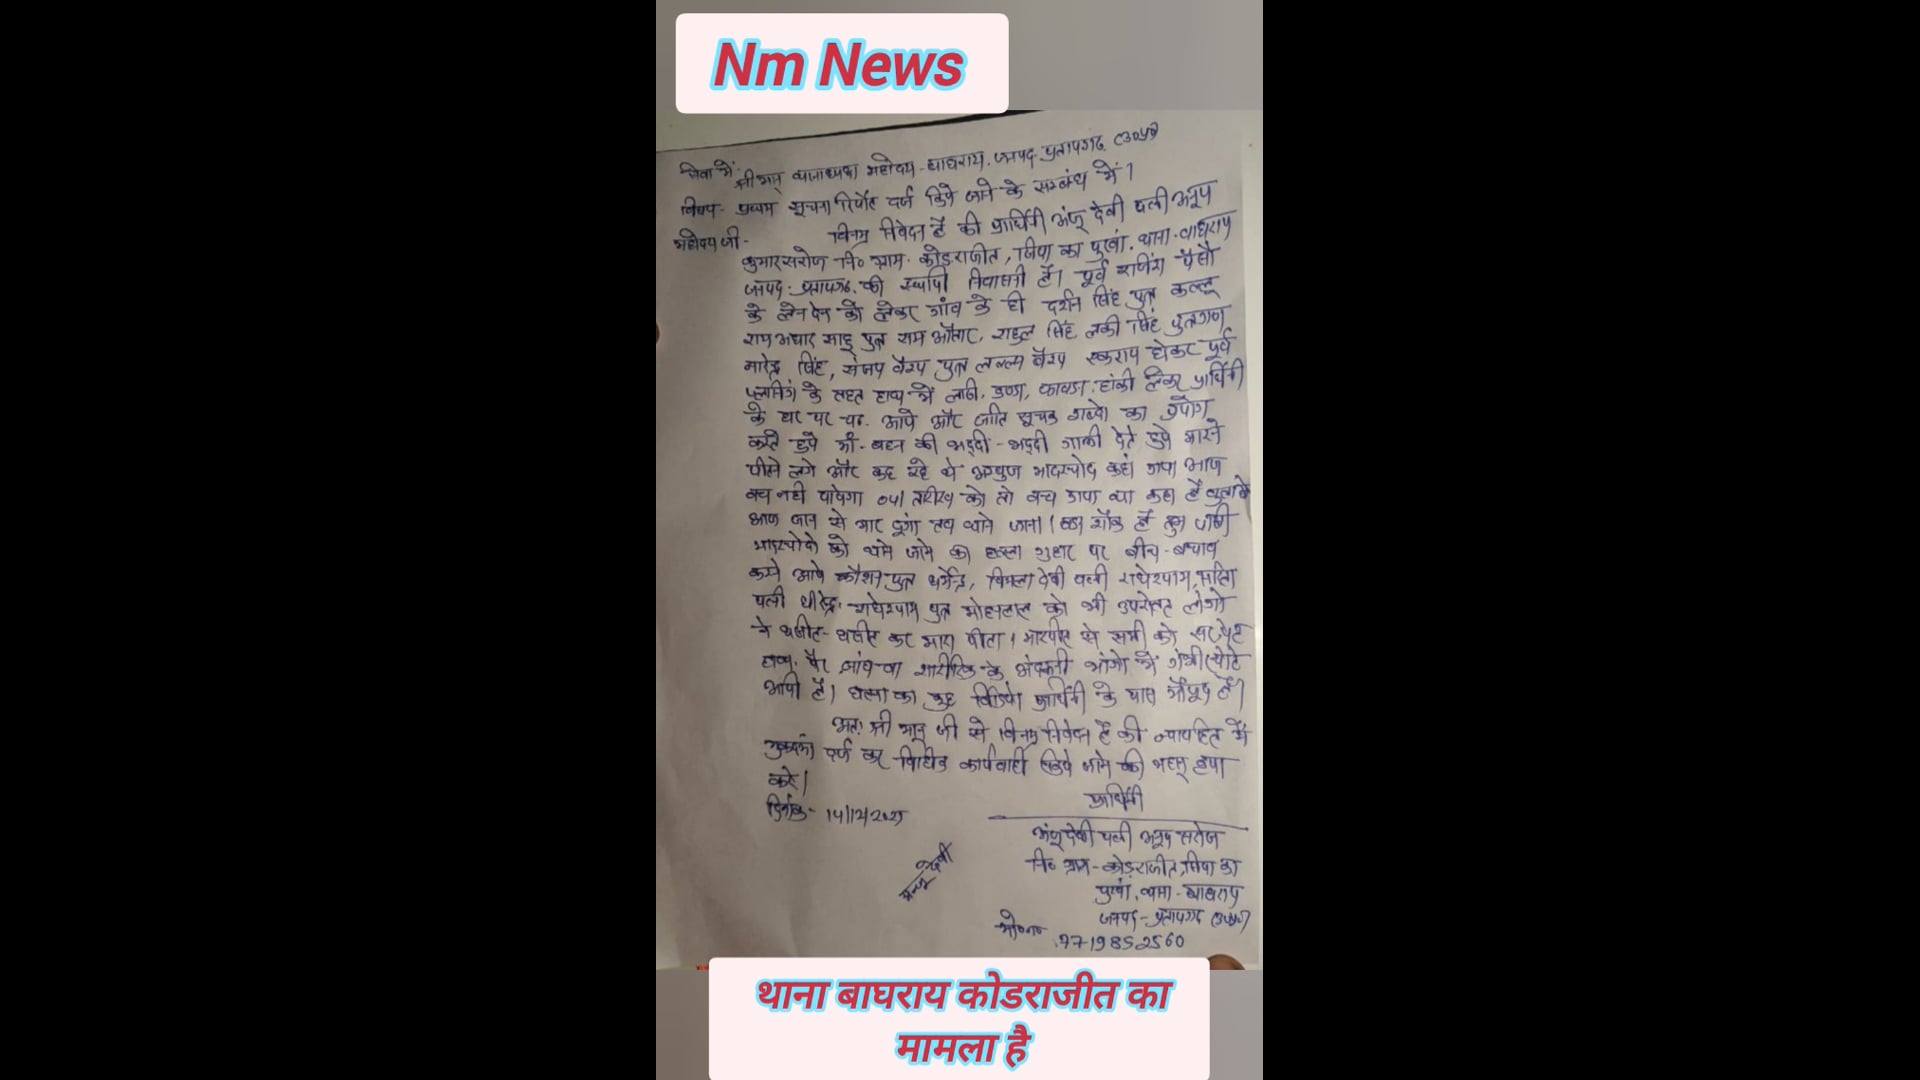 Nm News
सेवा में,
श्री मान् थानाध्यक्ष महोदय - बाघराय, जनपद - प्रतापगढ़ (उ०प्र०)
विषय - प्रथम सूचना रिपोर्ट दर्ज किये जाने के सम्बंध में।
महोदय जी -
विनम्र निवेदन है की प्रार्थिनी अंजू देवी पत्नी अनूप
कुमार सरोज नि० ग्राम - कोडराजीत, का पुरवा, थाना - बाघराय
जनपद - प्रतापगढ़ की स्थायी निवासिनी है। पूर्व रंजिश पैसौ
के लेन देन को लेकर गांव के ही दर्शन सिंह पुत्र कल्लू
राम साहू पुत्र राम औतार, राहुल सिंह, लकी सिंह पुत्रगण
सिंह, संजय वैश्य पुत्र वैश्य एकराय होकर पूर्व
के तहत हाथ में लाठी, डण्डा, फावडा, हांकी लेकर प्रार्थिनी
के घर पर चढ़ आये और जाति सूचक शब्दो का प्रयोग
करते हुये माँ - बहन की भद्दी - भद्दी गाली देते हुये मारने
पीटने लगे और कह रहे थे मादरचोद कहां गया आज
बच नही पायेगा तारीख को तो बच गया था कहा है
आज जान से मार दूंगा तब थाने जाना। बडा शौक है तुम
मादरचोदो को थाने जाने का हल्ला गुहार पर बीच - बचाव
करने आये पुत्र धर्मेन्द्र, विमला देवी पत्नी राधेश्याम,
पत्नी धीरेन्द्र, राधेश्याम पुत्र मोहनलाल को भी उपरोक्त लोगो
ने घसीट - घसीट कर मारा पीटा। मारपीट से सभी को सर, पेट
हाथ, पैर, जांघ वा शारीरिक के अंदरूनी अंगो में गंभीर चोटे
आयी है। घटना का कुछ विडियो प्रार्थिनी के पास मौजूद है।
अतः श्री मान् जी से विनम्र निवेदन है की न्यायहित में
मुकदमा दर्ज कर विधिक कार्यवाही किये जाने की महान् कृपा
करे।
दिनांक - 14/12/2025
प्रार्थिनी
अंजू देवी पत्नी अनूप सरोज
नि० ग्राम - कोडराजीत, का
पुरवा, थाना - बाघराय
जनपद - प्रतापगढ़ (उ०प्र०)
मो०न०
थाना बाघराय कोडराजीत का
मामला है